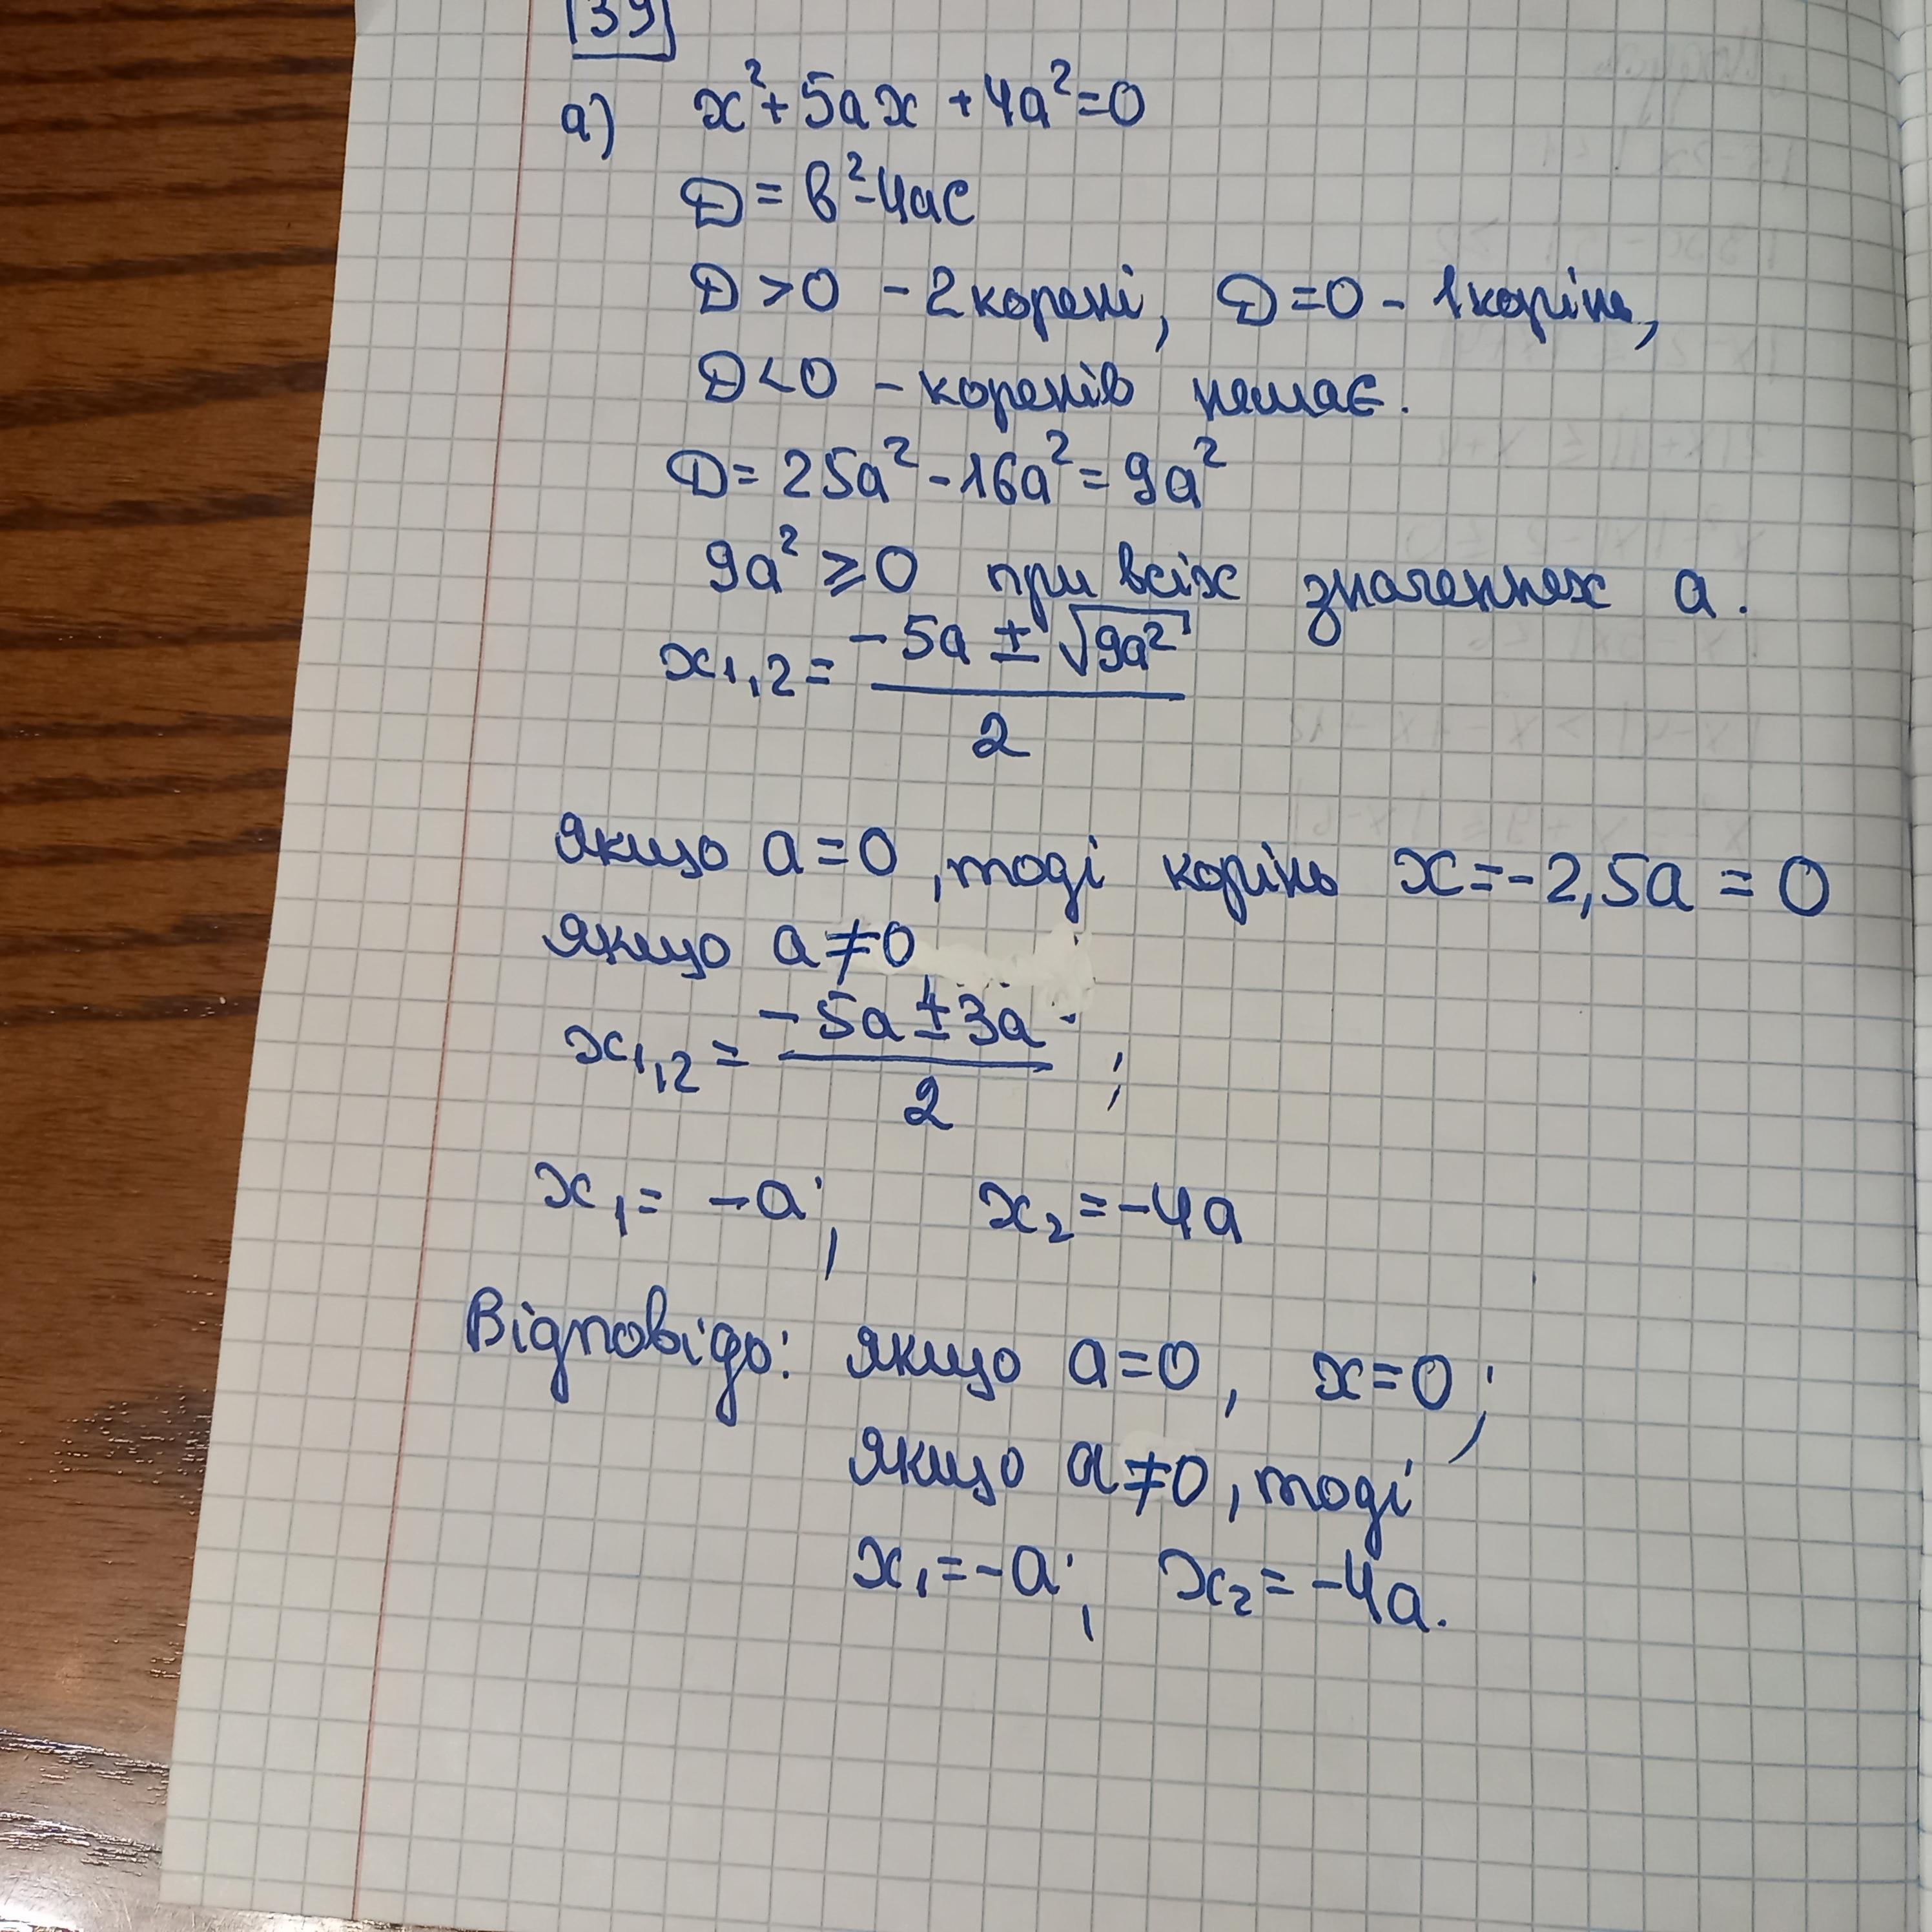 39
а) x² + 5ax + 4a² = 0
D = b² - 4ac
D > 0 - 2 корені, D = 0 - 1 корінь,
D < 0 - коренів немає.
D = 25a² - 16a² = 9a²
9a² ≥ 0 при всіх значеннях a.
x₁,₂ = (-5a ± √9a²) / 2
якщо a = 0, тоді корінь x = -2,5a = 0
якщо a ≠ 0
x₁,₂ = (-5a ± 3a) / 2 ;
x₁ = -a; x₂ = -4a
Відповідь: якщо a = 0, x = 0;
якщо a ≠ 0, тоді
x₁ = -a; x₂ = -4a.